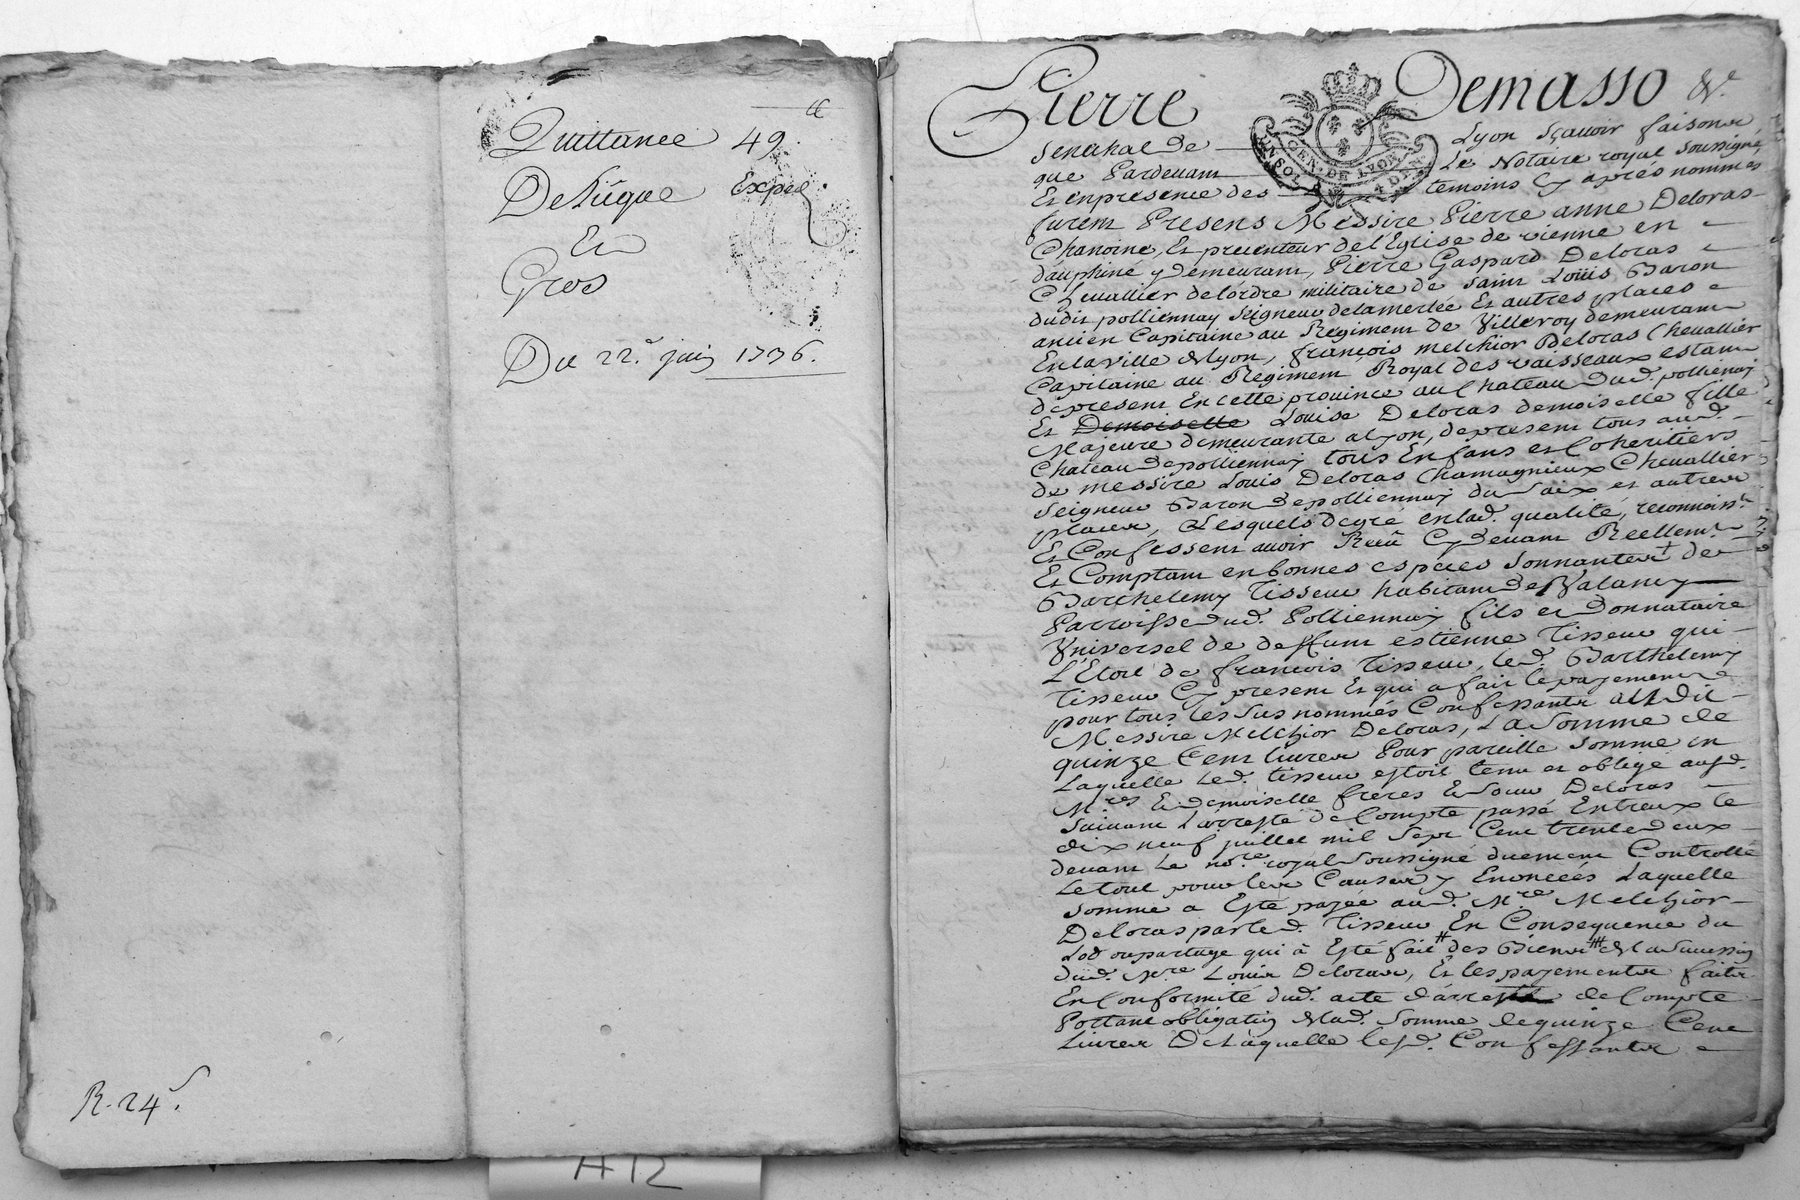 Quittance 49.
De Sugne Exped.
Et
Gros
Du 22.e juin 1736.
R. 24s.
A12
Pierre Demasso &c.
GEN. DE LYON
Senechal de Lyon sçavoir faisons
que Pardevant Le Notaire royal soussigné
Et en presence des temoins cy aprés nommés
furent Presens Messire Pierre anne Deloras
Chanoine, Et precenteur de l'Eglise de vienne en
dauphiné y demeurant, Pierre Gaspard Deloras
Chevallier de l'ordre militaire de saint Louis Baron
dudit polliennay Seigneur delamerlée Et autres places
ancien Capitaine au Regiment de Villeroy demeurant
En laville de lyon, françois melchior Deloras Chevallier
Capitaine au Regiment Royal des vaisseaux estant
depresent En cette province au Chateau dud. pollienay
Et Demoiselle Louise Deloras demoiselle fille
Majeure demeurante a lyon, depresent tous aud.
Chateau de polliennay tous Enfans et Coheritiers
de messire Louis Deloras Chamagnieux Chevallier
Seigneur Baron de polliennay du Saix et autres
places, Lesquels de gré en lad. qualité, reconnoiss.t
Et Confessent avoir Reçû Cy devant Reellem.t
Et Comptant en bonnes especes sonnantes de
Barthelemy Tisseur habitant de Valancy
Parroisse dud. Polliennay fils et donnataire
Vniversel de deffunt estienne Tisseur qui
L'Etoit de françois Tisseur, led. Barthelemy
Tisseur Cy present Et qui a fait le payement
pour tous les susnommés Confessants audit
Messire Melchior Deloras, La somme de
quinze Cent livres Pour pareille somme en
Laquelle led. tisseur estoit tenu et obligé ausd.
Mres Et demoiselle freres Et Soeur Deloras
suivant L'arresté de Compte passé Entreux le
dix neuf juillet mil Sept Cent trente deux
devant Le no.re royal soussigné duement Controllé
Le tout pour les Causes y Enoncées Laquelle
somme a Esté payée aud. M.re Melchior
Deloras par led. Tisseur En Consequence du
Lod ou partage qui à Esté fait des Biens de la Succession
dud. M.re Louis Deloras, Et les payements faits
En Conformité dud. acte d'arresté de Compte
Portant obligation de lad. somme de quinze Cent
Livres De Laquelle lesd. Confessants